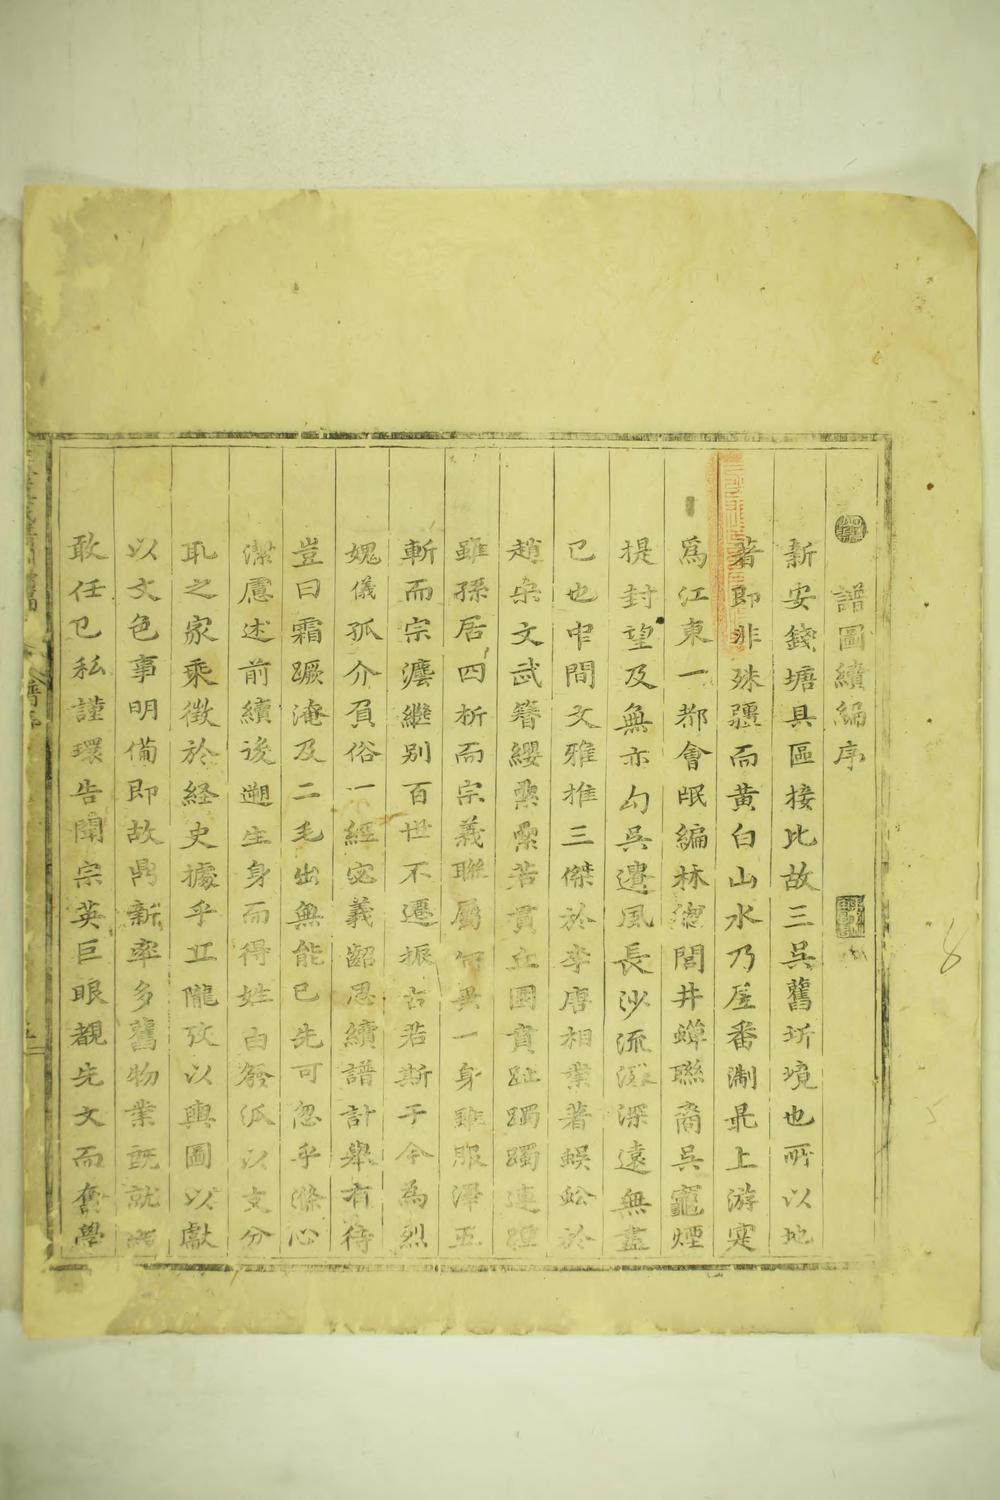 譜圖續編序
新安錢塘具區接比故三吳舊所境也所以地
著即非殊疆而黃白山水乃居番淛最上游寔
爲江東一都會甿編林總閭井蟬聯裔吳竈煙
提封望及無亦勾吳遺風長沙流深遠無盡
已也中間文雅推三傑於李唐相業著蜈蚣於
趙宋文武簪纓纍纍若貫立國賁趾躅躅連
雖孫居四析而宗義聯屬何異一身雖服澤五
斬而宗灋繼別百世不遷振古若斯于今為烈
媿儀孤介肙俗一經宓義韶思續譜計舉有待
豈曰霜蹶淹及二毛出無能已先可忽乎滌心
潔慮述前續後遡生身而得姓由發瓜以支分
耴之家乘徵於経史據乎丘隴攷以輿圖以獻
以文色事明備即故鼎新率多舊物業旣就
敢任已私謹環告閤宗英巨眼覩先文而奮學